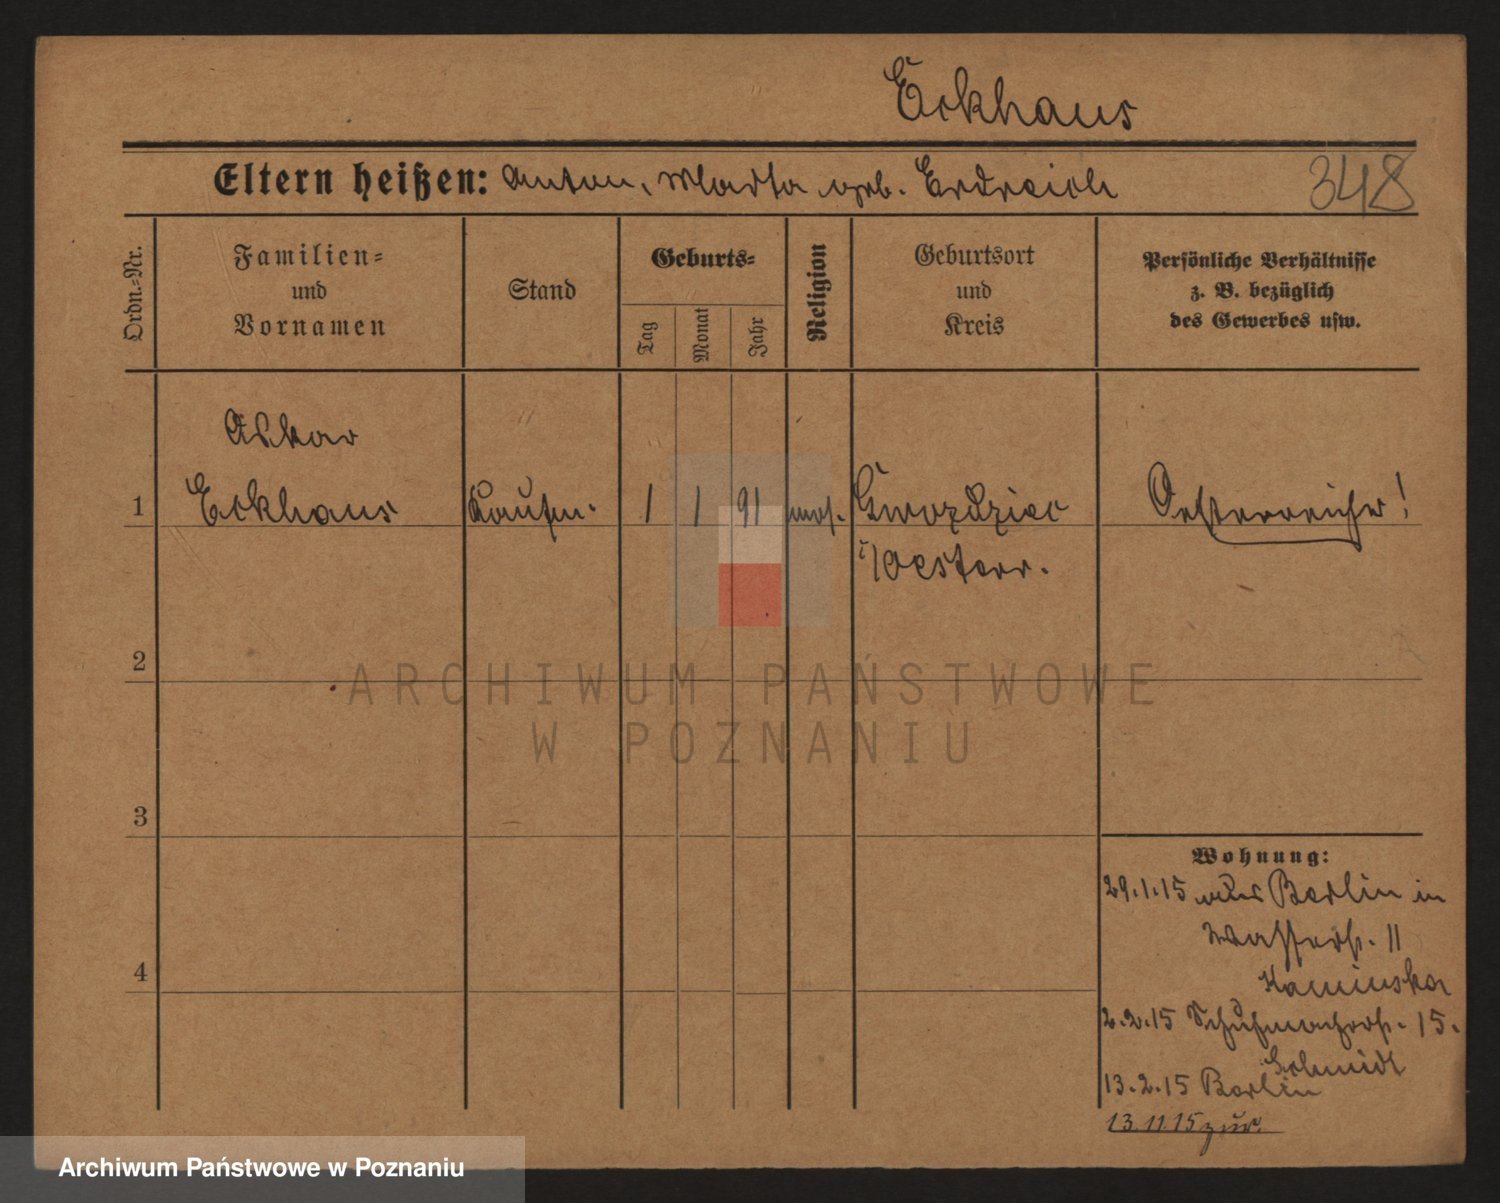 Eckhaus
Eltern heißen: Anton, Marta geb. Erdreich
348
Ordn.-Nr.
Familien-
und
Vornamen
Stand
Geburts-
Tag
Monat
Jahr
Religion
Geburtsort
und
Kreis
Persönliche Verhältnisse
z. B. bezüglich
des Gewerbes usw.
Oskar
1 Eckhaus Kaufm. 1 1 91 mos. Gwozdziec Oesterreicher!
i/Oesterr.
2
ARCHIWUM PAŃSTWOWE
W POZNANIU
3
Wohnung:
29.1.15 aus Berlin in
Wasserstr. 11
Kaminska
4
2.2.15 Schuhmacherstr. 15.
Schmidt
13.2.15 Berlin
13.11.15 zur.
Archiwum Państwowe w Poznaniu